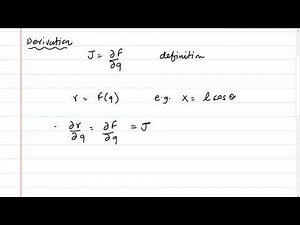 Derivation
J = ∂f/∂q definition
r = f(q) e.g. x = l cos θ
∴ ∂r/∂q = ∂f/∂q = J